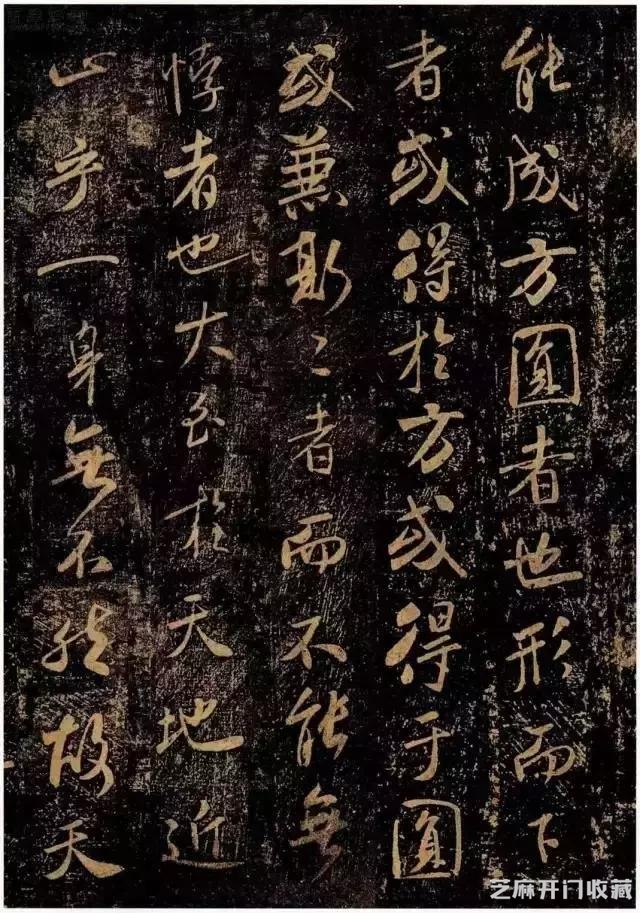 能成方圓者也形而下
者或得於方或得于圓
或兼斯二者而不能無
悖者也大至於天地近
止乎一身無不然故天
芝麻开门收藏